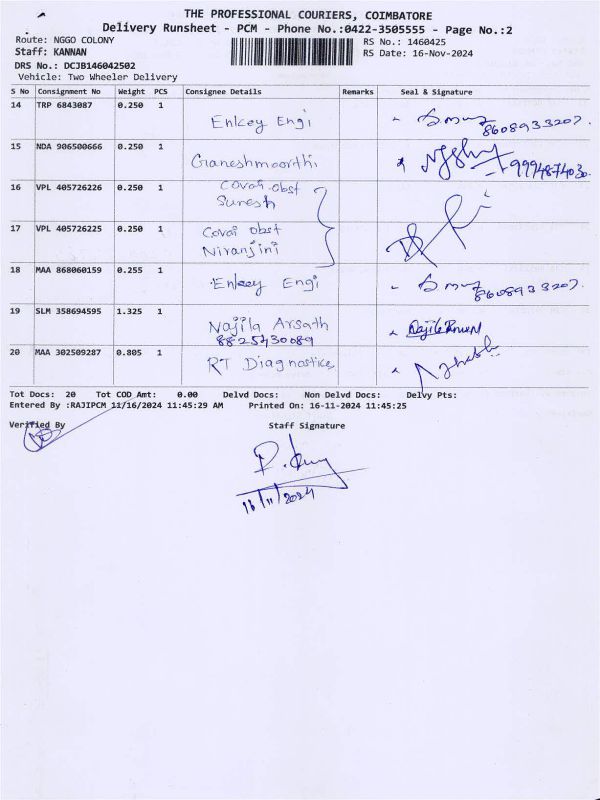 THE PROFESSIONAL COURIERS, COIMBATORE
Delivery Runsheet - PCM - Phone No.:0422-3505555 - Page No.:2
Route: NGGO COLONY
RS No.: 1460425
Staff: KANNAN
RS Date: 16-Nov-2024
DRS No.: DCJB146042502
Vehicle: Two Wheeler Delivery
S No Consignment No Weight PCS Consignee Details Remarks Seal & Signature
14 TRP 6843087 0.250 1 Enkey Engi 8608933207.
15 NDA 906500666 0.250 1 Ganeshmoorthi 9994874030.
16 VPL 405726226 0.250 1 Covai obst
Suresh
17 VPL 405726225 0.250 1 Covai obst
Niranjini
18 MAA 868060159 0.255 1 Enkey Engi 8608933207.
19 SLM 358694595 1.325 1 Najila Arsath
8825430089
20 MAA 302509287 0.805 1 RT Diagnostics
Tot Docs: 20 Tot COD Amt: 0.00 Delvd Docs: Non Delvd Docs: Delvy Pts:
Entered By :RAJIPCM 11/16/2024 11:45:29 AM Printed On: 16-11-2024 11:45:25
Verified By Staff Signature
16/11/2024